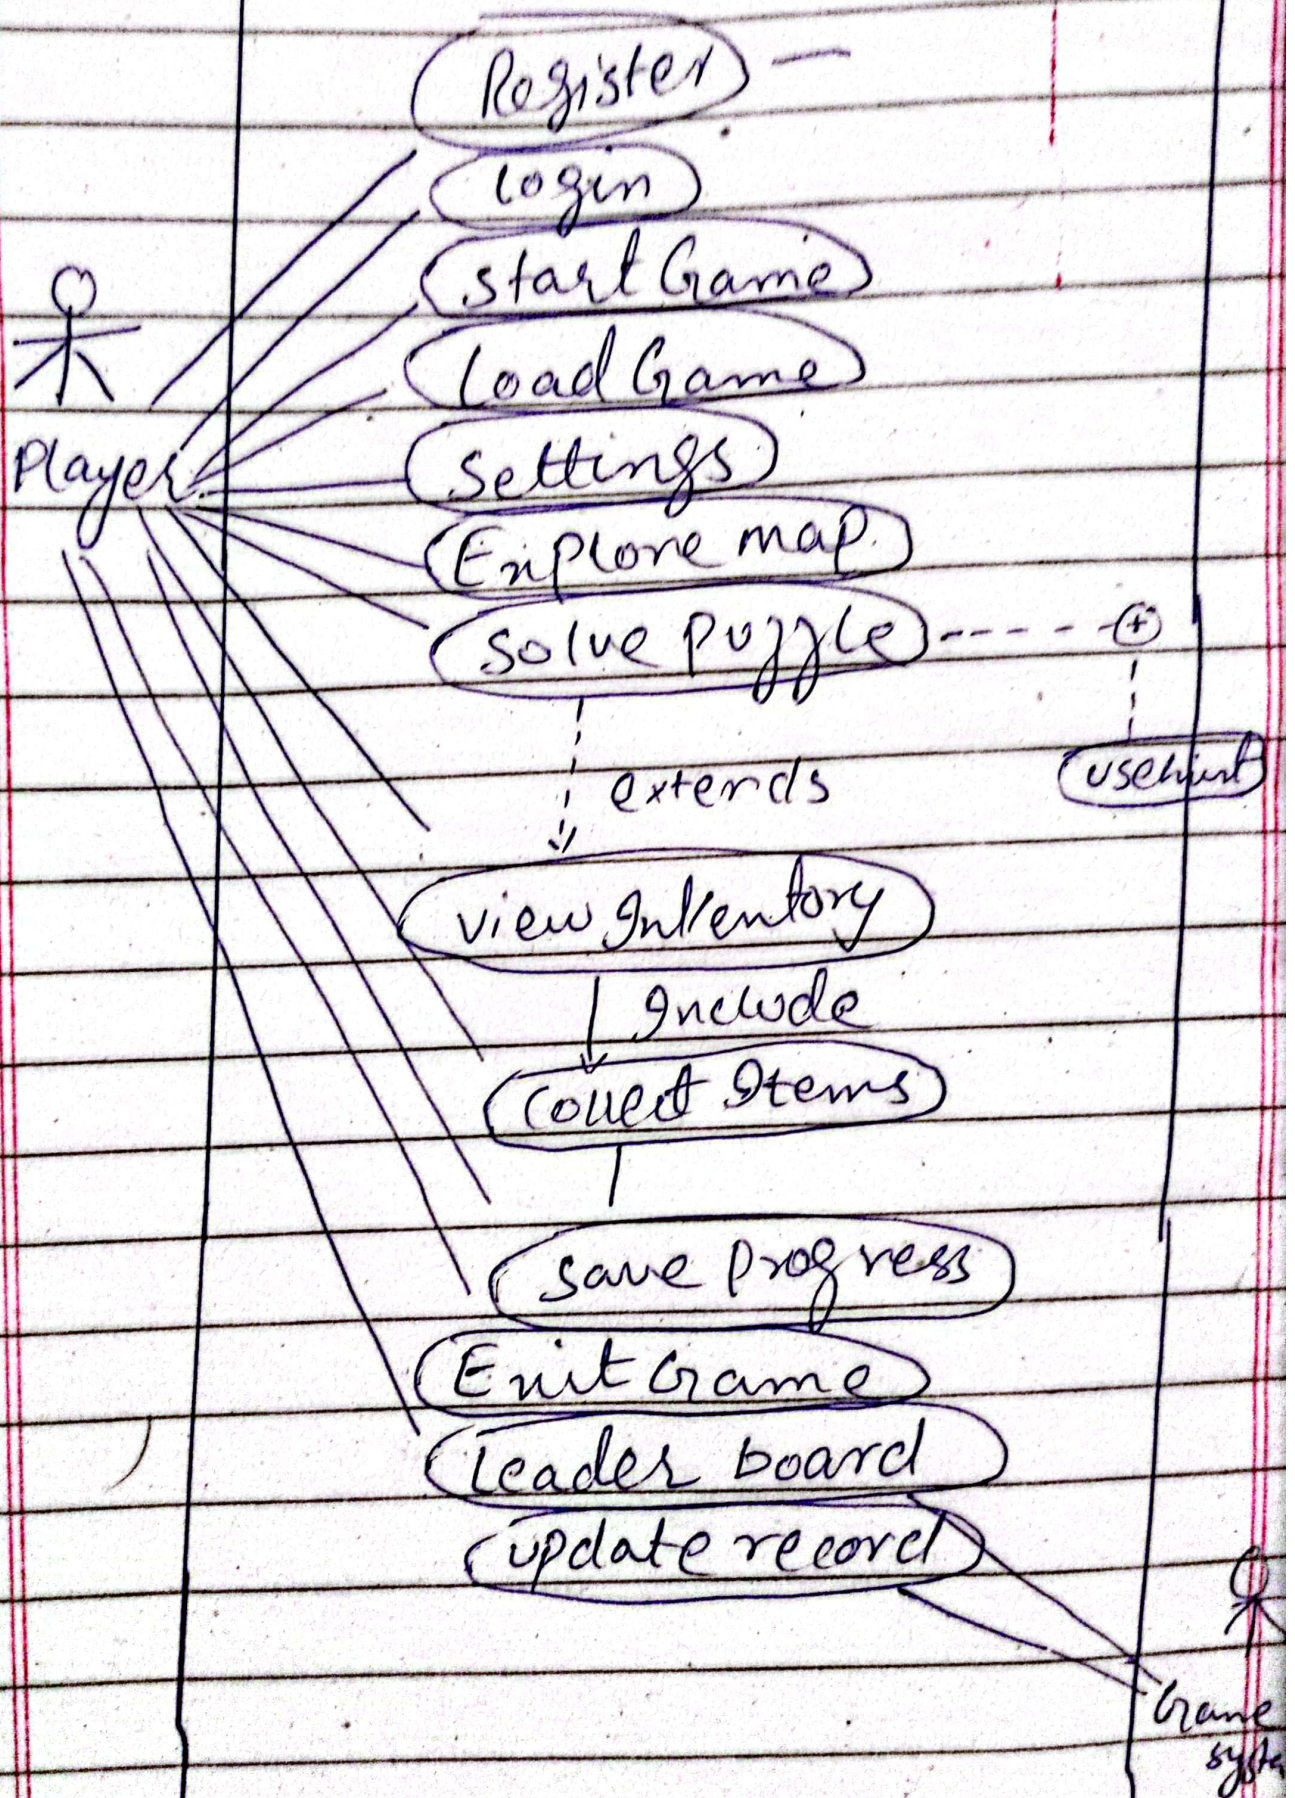 Register
login
start Game
Load Game
Player
settings
Explore map
solve puzzle
+
usehint
extends
view Inventory
Include
collect Items
save progress
Exit Game
Leader board
update record
Game